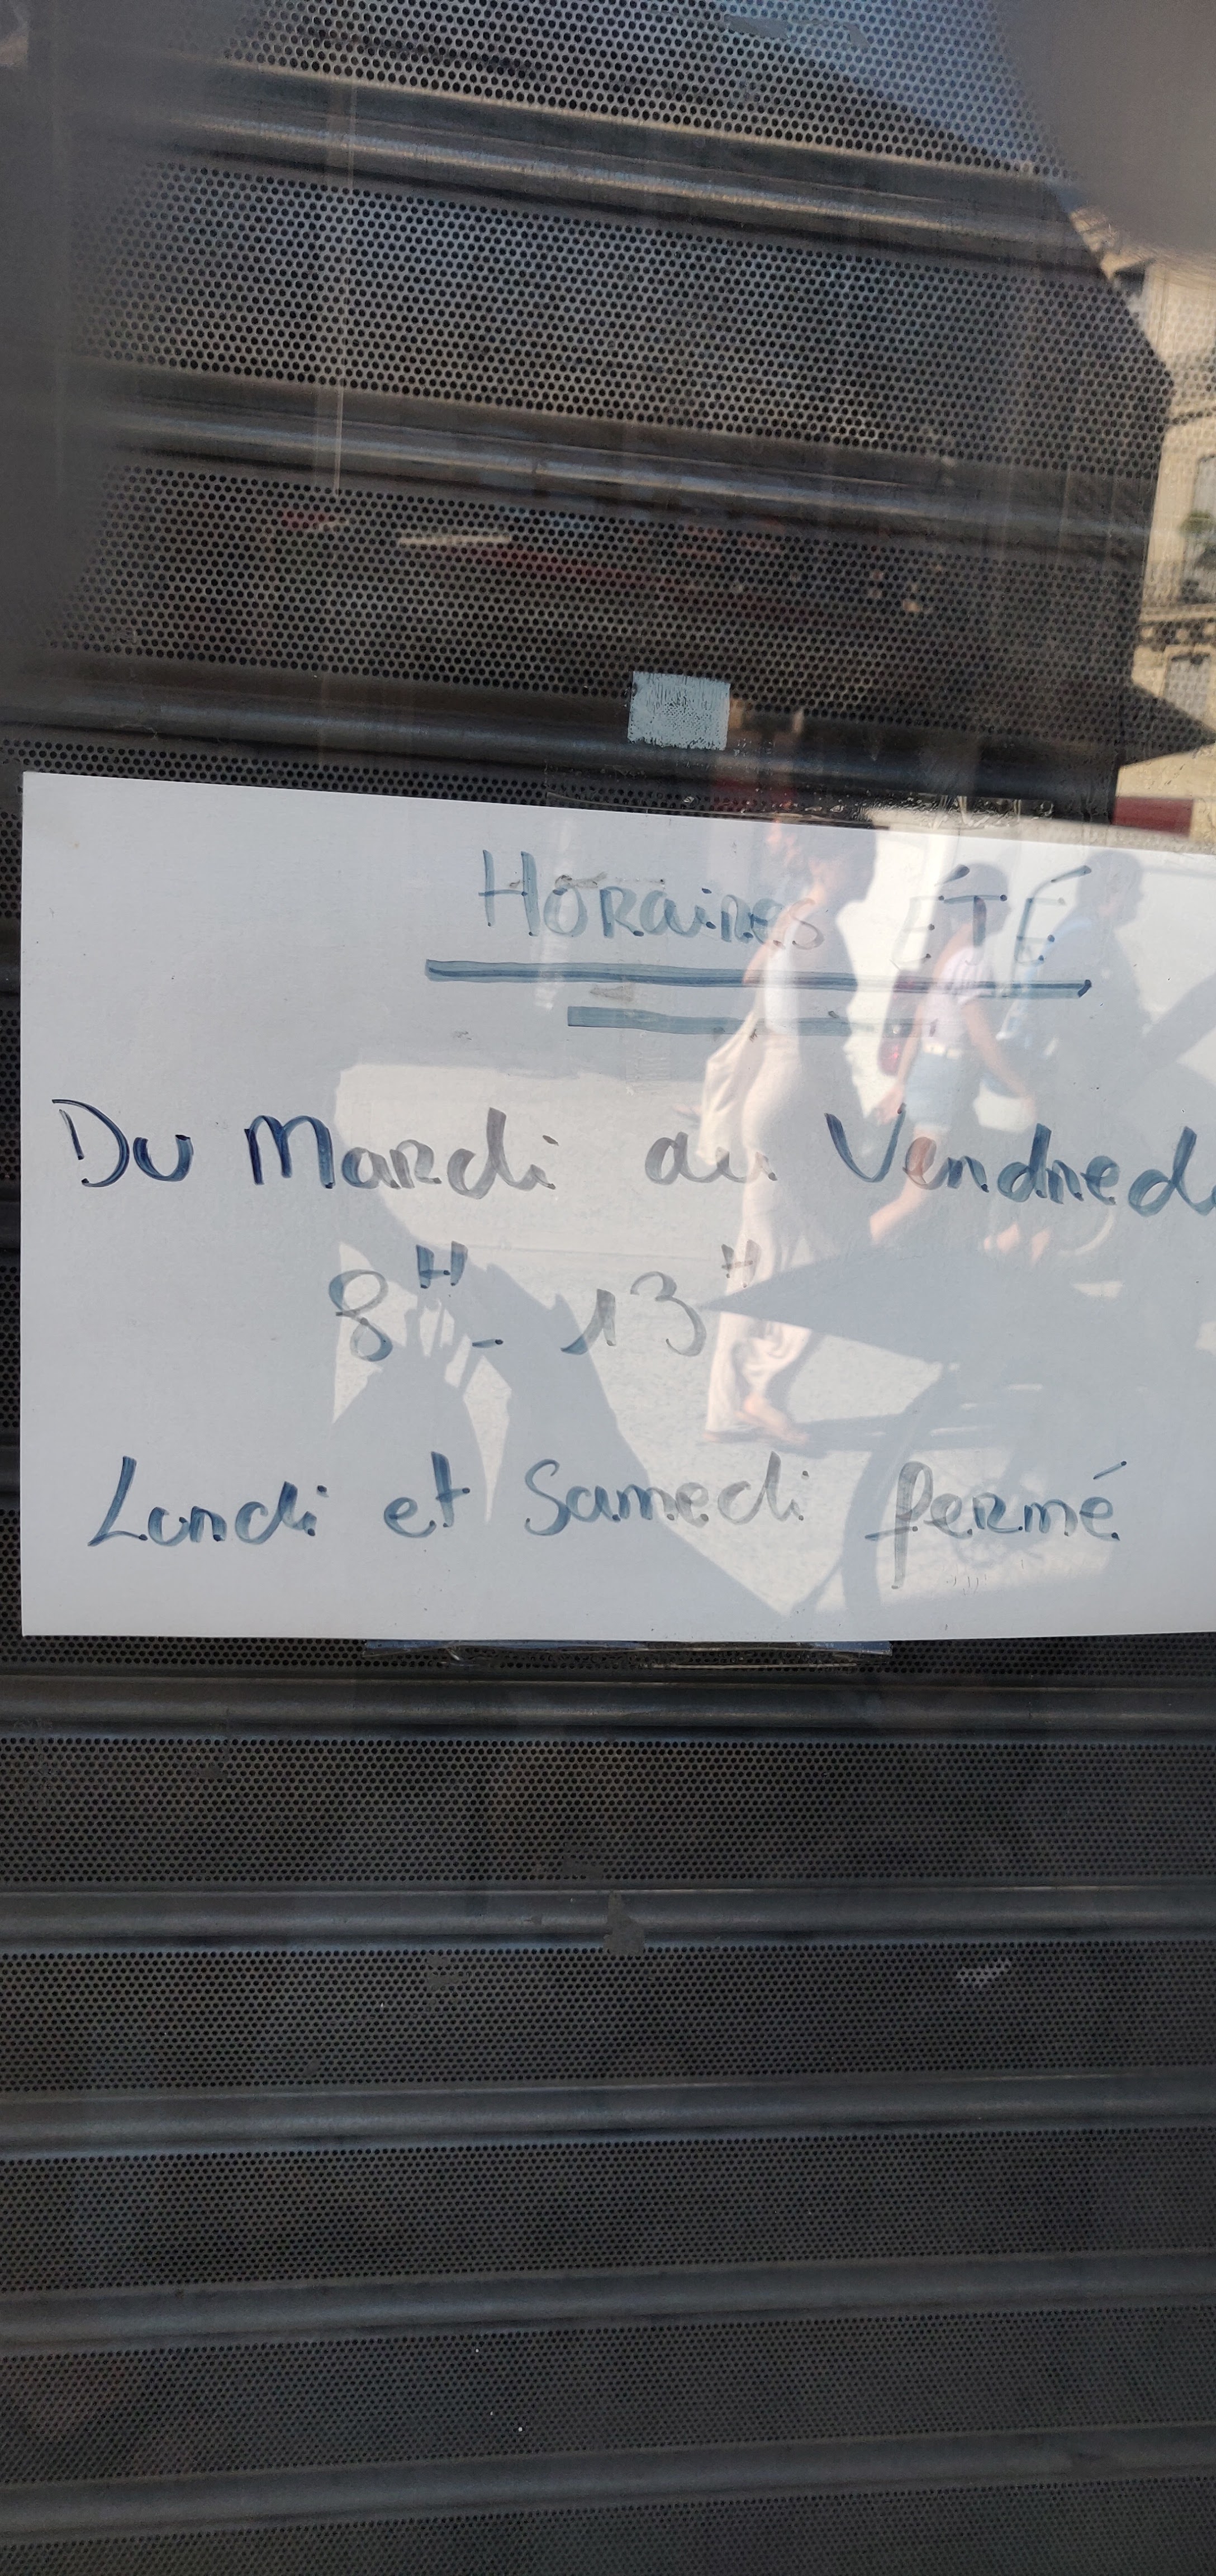 Horaires ÉTÉ
Du Mardi au Vendredi
8H - 13H
Lundi et Samedi fermé